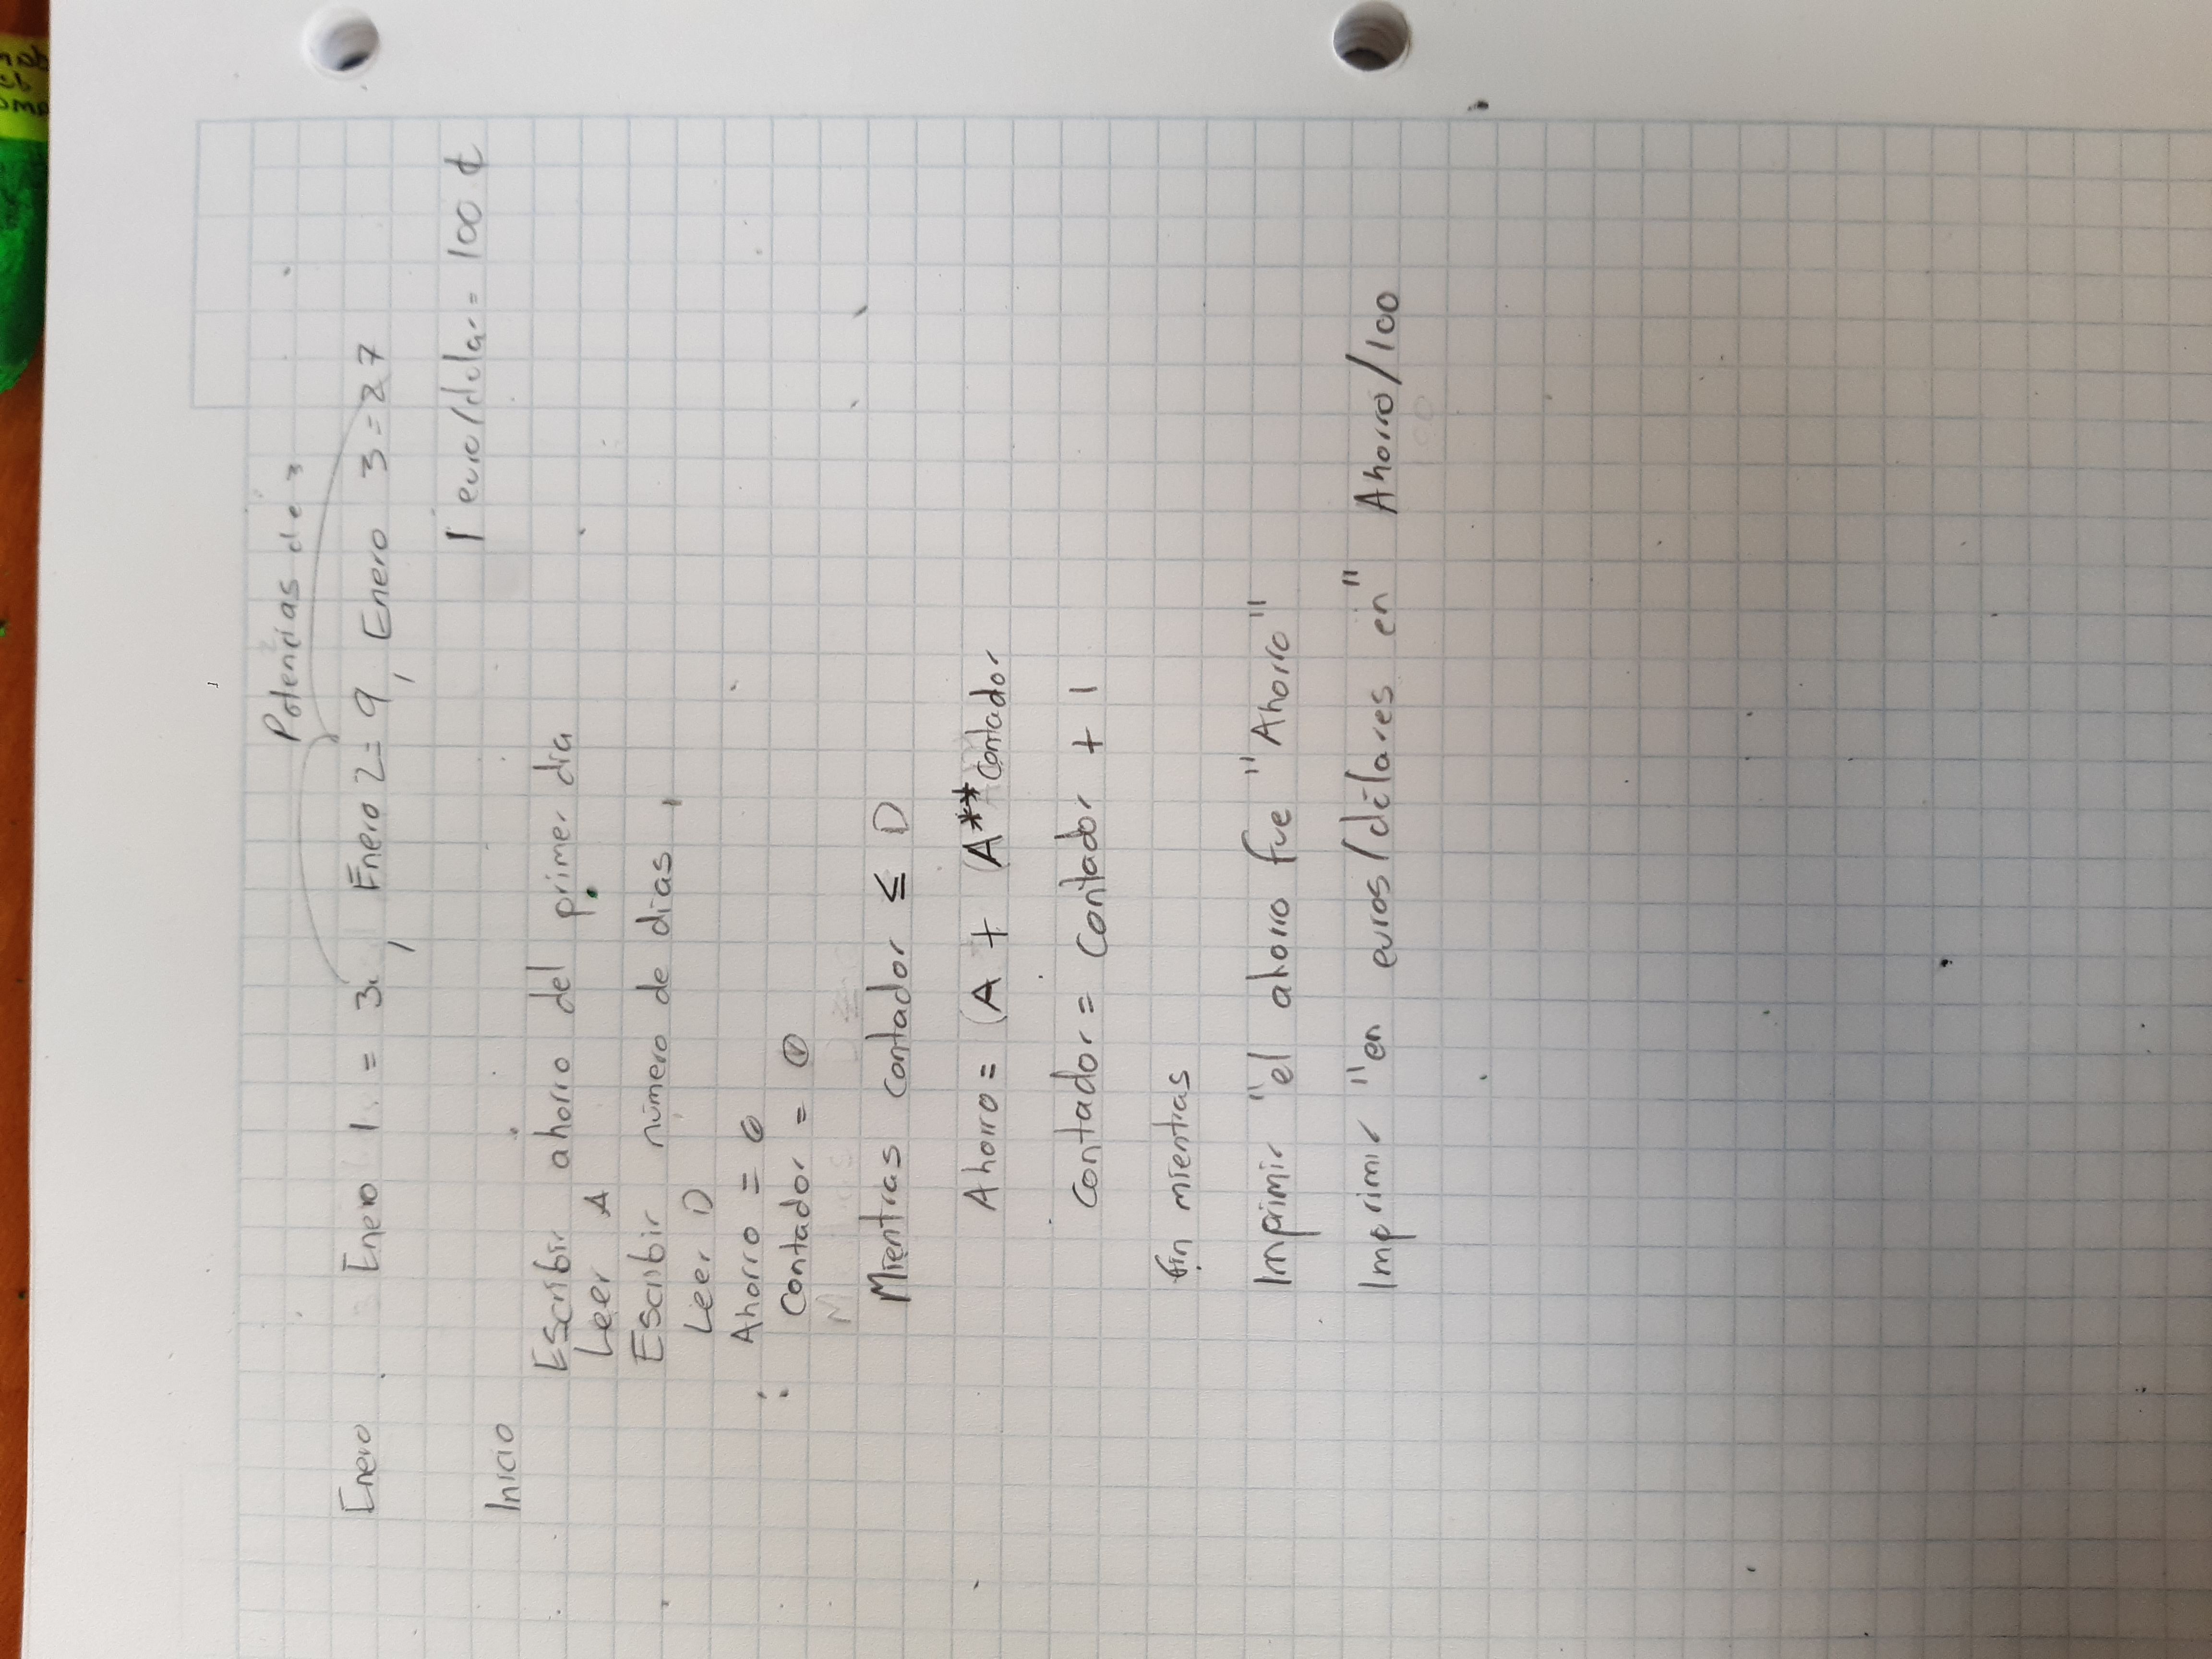 Potencias de 3
Enero Enero 1. = 3, Enero 2 = 9, Enero 3 = 27
1 euro/dolar = 100 ¢
Inicio
Escribir ahorro del primer dia
Leer A
Escribir número de dias,
Leer D
Ahorro = 0
Contador = 0
Mientras contador ≤ D
Ahorro = (A + (A**contador
contador = contador + 1
fin mientras
Imprimir "el ahorro fue "Ahorro"
Imprimir "en euros/dólares en" Ahorro/100